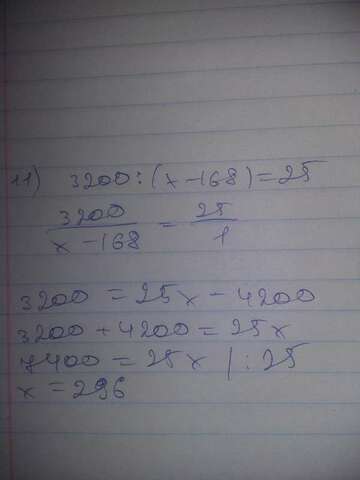 11) 3200:(x-168)=25
3200/x-168 = 25/1
3200 = 25x - 4200
3200 + 4200 = 25x
7400 = 25x /:25
x = 296